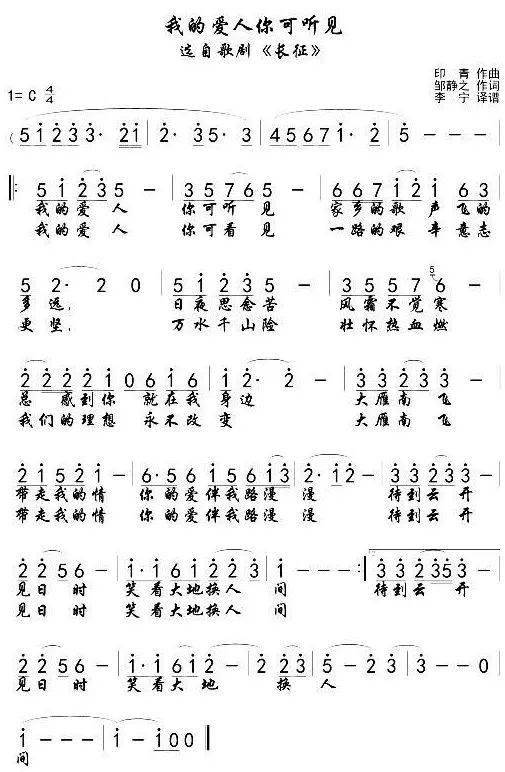 我的爱人你可听见
选自歌剧《长征》
印 青 作曲
1= C 4/4
邹静之 作词
李 宁 译谱
(5 1 2 3 3· 2 1 2· 3 5· 3· (4 5 6 7 1· 2 5 - - -
5 1 2 3 5 - 3 5 7 6 5 - 6 6 7 1 2 1 6 3
我的爱人 你可听见 家乡的歌声飞的
我的爱人 你可看见 一路的艰辛意志
5 2· 2 0 5 2 2 3 2 - 3 5 5 7 5 6
多远, 日夜思念苦 风霜不觉寒
更坚, 万水千山险 壮怀热血燃
2 2 2 2 1 0 6 1 6 1 2· 2 - 3 3 2 3 3
总感到你就在我身边 大雁南飞
我们的理想永不改变 大雁南飞
2 1 5 2 1 - 6· 5 6 1 5 6 1 3 2· 1 2 - 3 3 2 3 3 -
带走我的情 你的爱伴我路漫漫 待到云开
带走我的情 你的爱伴我路漫漫 待到云开
2 2 5 6 - 1· 1 6 1 2 2 3 1 - - - :‖ 3 3 2 3 5 3 -
见日时 笑看大地换人间 待到云开
见日时 笑看大地换人间
2 2 5 6 - 1· 1 6 1 2 - 2 - - 2 3 - - 0
见日时 笑看大地 换人
1 - - - 1 - 1 0 0
间